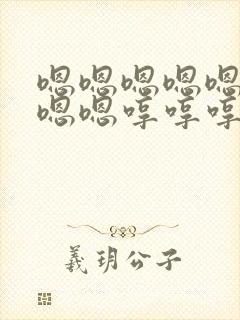 嗯嗯嗯嗯嗯
嗯嗯哼哼哼
羲玥公子